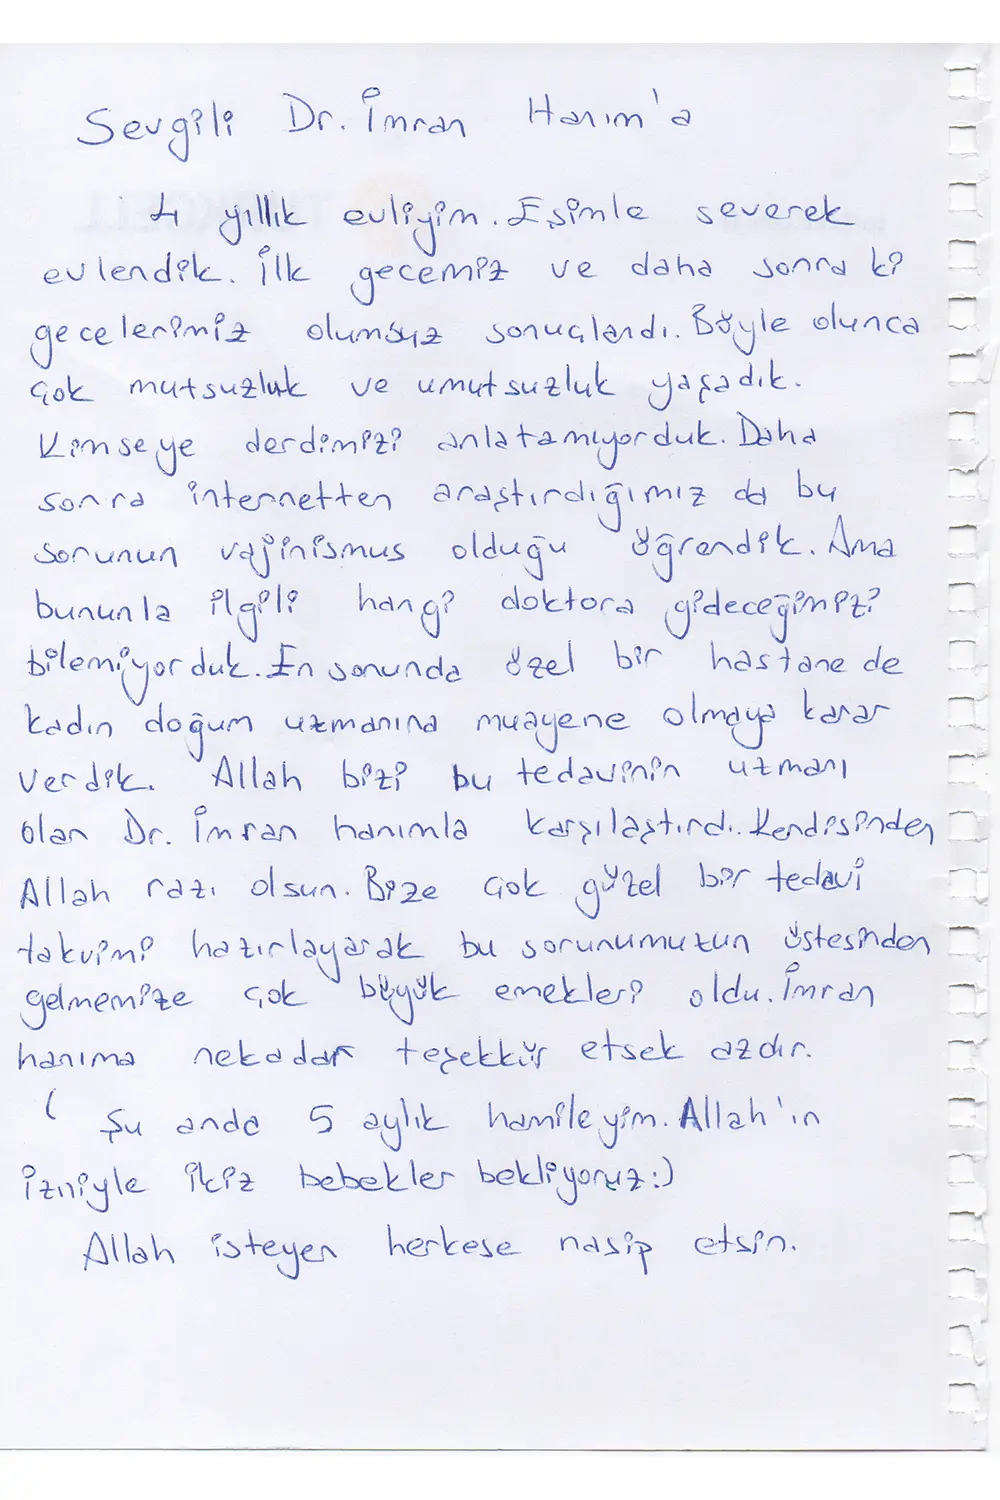 Sevgili Dr. İmran Hanım'a
4 yıllık evliyim. Eşimle severek
evlendik. İlk gecemiz ve daha sonra ki
gecelerimiz olumsuz sonuçlandı. Böyle olunca
çok mutsuzluk ve umutsuzluk yaşadık.
Kimseye derdimizi anlatamıyorduk. Daha
sonra internetten araştırdığımız da bu
sorunun vajinismus olduğu öğrendik. Ama
bununla ilgili hangi doktora gideceğimizi
bilemiyorduk. En sonunda özel bir hastane de
kadın doğum uzmanına muayene olmaya karar
verdik. Allah bizi bu tedavinin uzmanı
olan Dr. İmran hanımla karşılaştırdı. Kendisinden
Allah razı olsun. Bize çok güzel bir tedavi
takvimi hazırlayarak bu sorunumuzun üstesinden
gelmemize çok büyük emekleri oldu. İmran
hanıma nekadar teşekkür etsek azdır.
( Şu anda 5 aylık hamileyim. Allah'ın
izniyle ikiz bebekler bekliyoruz :)
Allah isteyen herkese nasip etsin.
TURKCELL